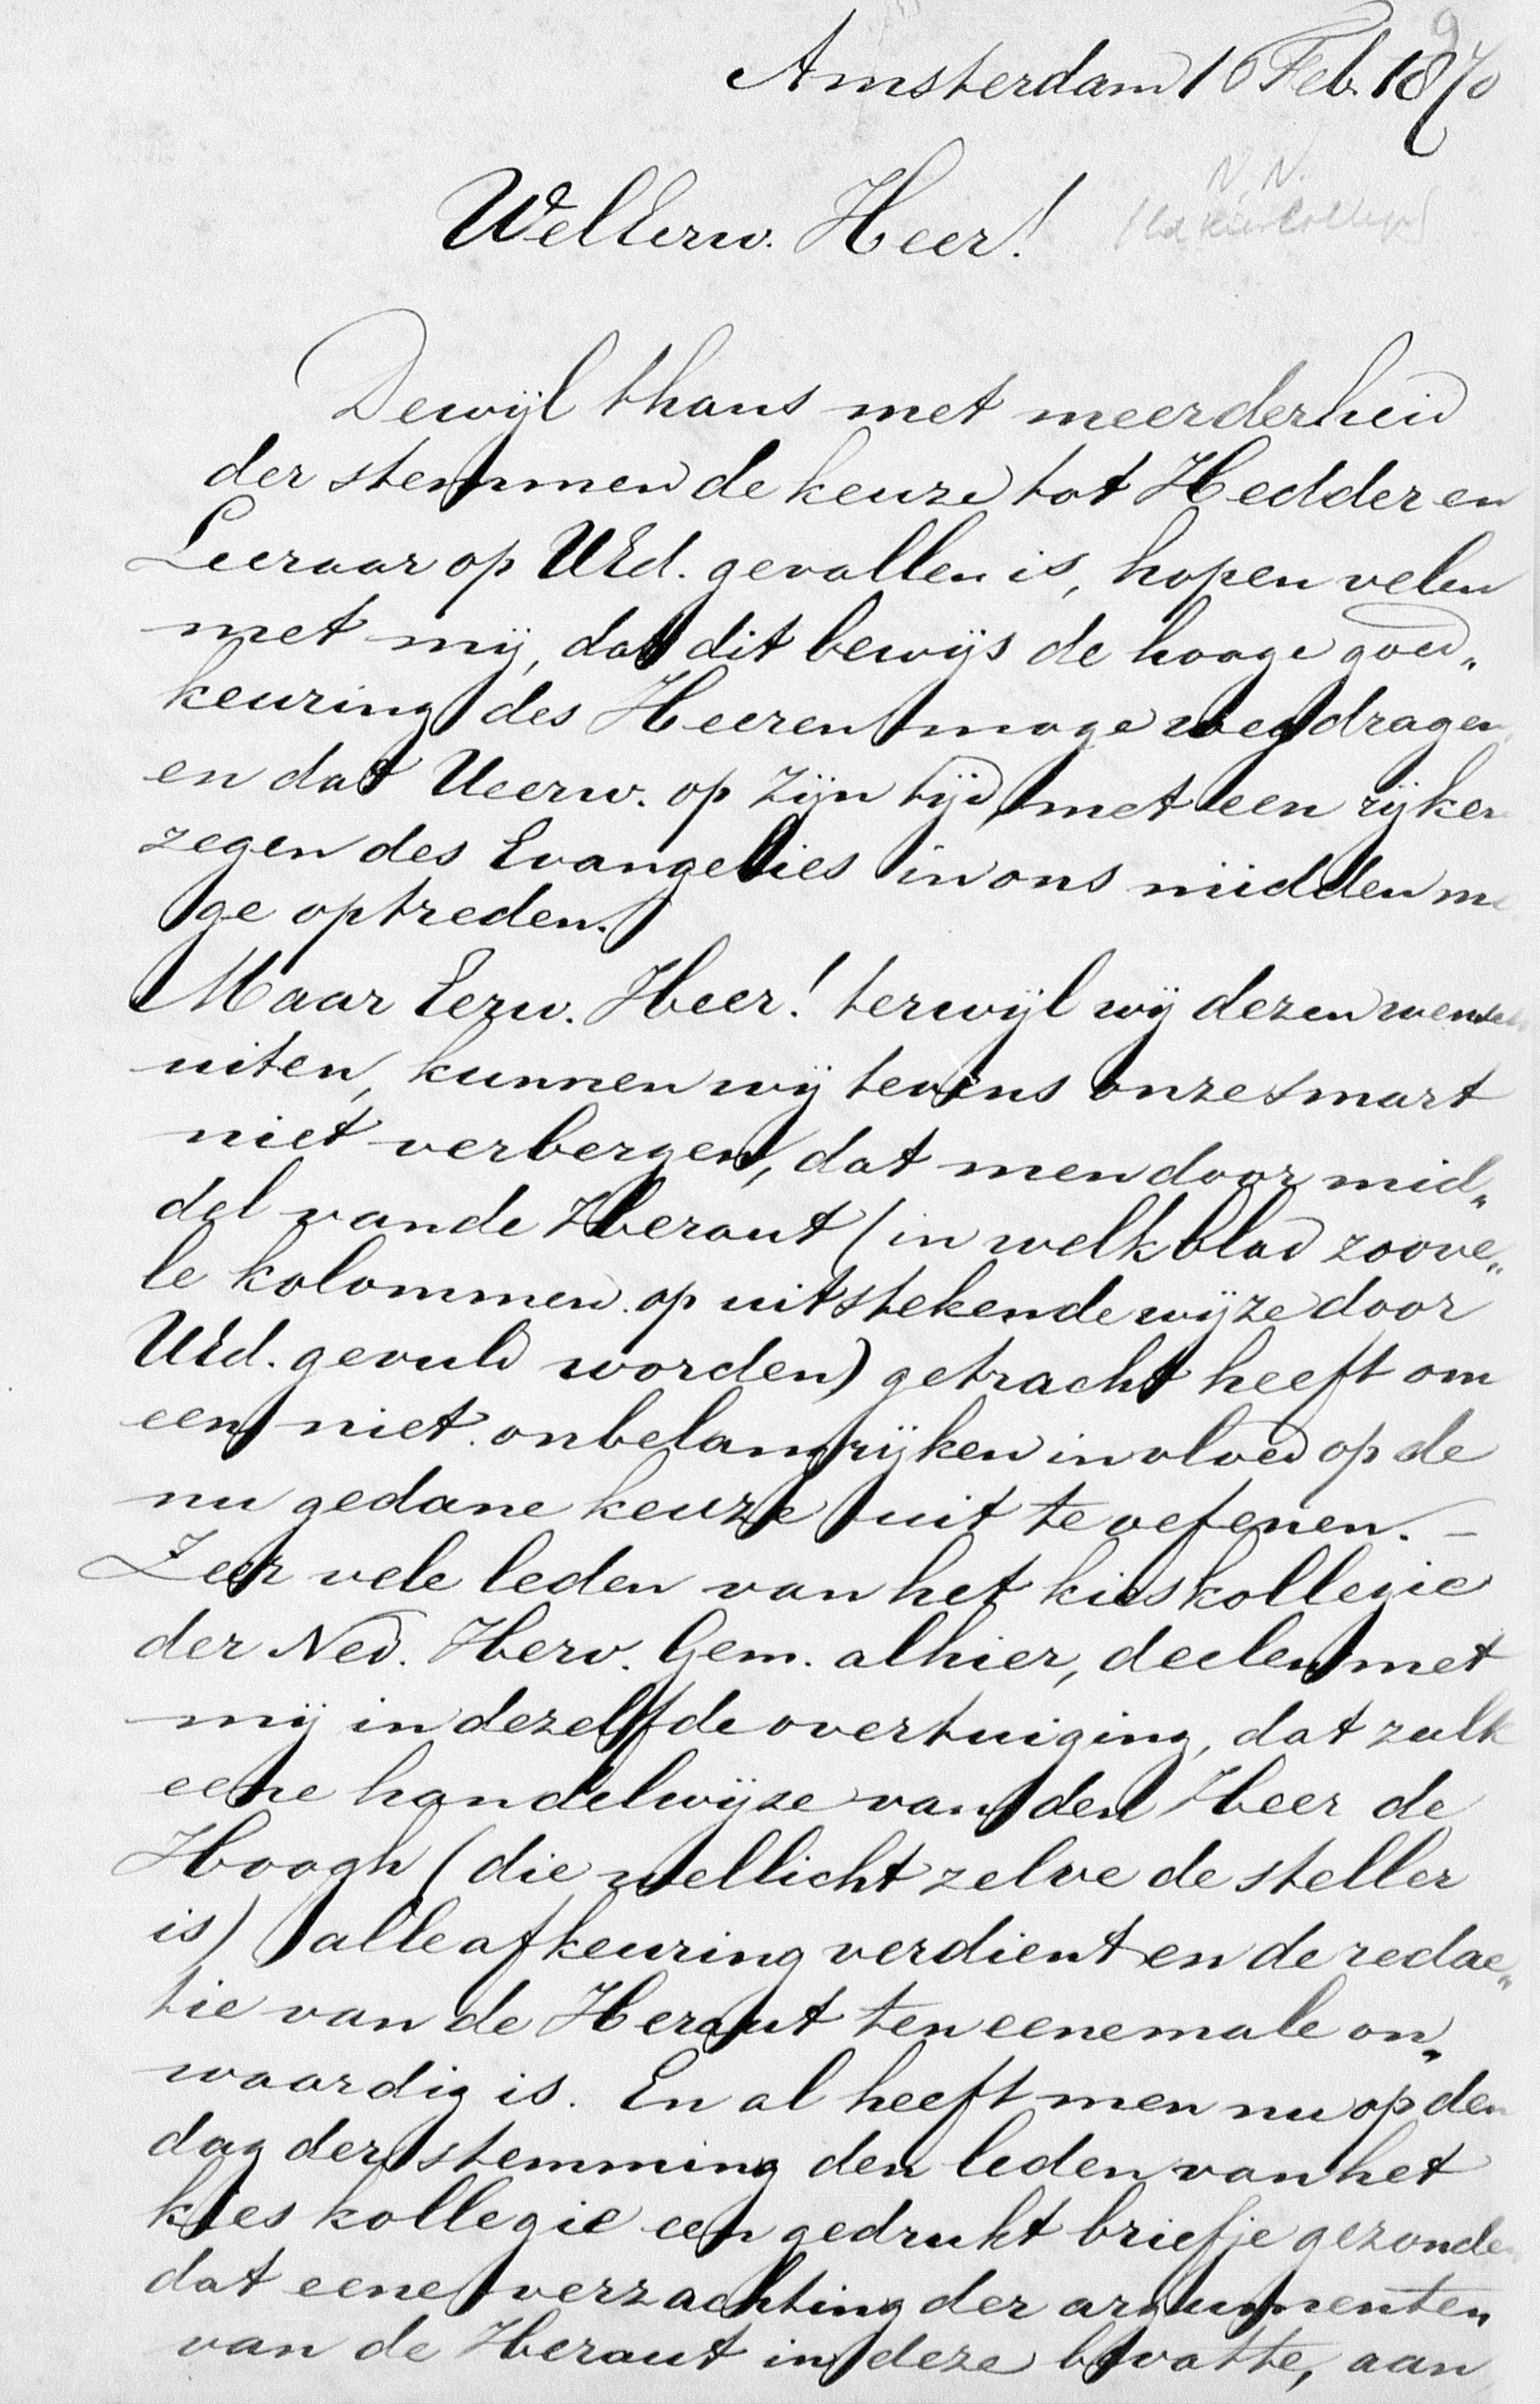 Amsterdam 16 Feb. 1870
WelEerw. Heer!
N.N.
Dewijl thans met meerderheid
der stemmen de keuze tot Hedder en
Leeraar op UEd. gevallen is, hopen velen
met mij, dat dit bewijs de hooge goed„
keuring des Heeren moge wegdragen
en dat Ueerw. op Zijn tijd, met een rijken
zegen des Evangelies in ons midden mo
ge optreden.
Maar Eerw. Heer! terwijl wij dezen wensch
uiten, kunnen wij tevens onze smart
niet verbergen, dat men door mid„
del van de Heraut (in welk blad zoove„
le kolommen op uitstekende wijze door
UEd. gevuld worden) getracht heeft om
een niet onbelangrijken invloed op de
nu gedane keuze uit te oefenen. –
Zeer vele leden van het kieskollegie
der Ned. Herv. Gem. alhier, deelen met
mij in dezelfde overtuiging, dat zulk
eene handelwijze van den Heer de
Hoogh (die wellicht zelve de steller
is) alle afkeuring verdient en de redac„
tie van de Heraut ten eenemale on„
waardig is. En al heeft men nu op den
dag der stemming den leden van het
kies kollegie een gedrukt briefje gezonden
dat eene verzachting der argumenten
van de Heraut in deze bevatte, aan